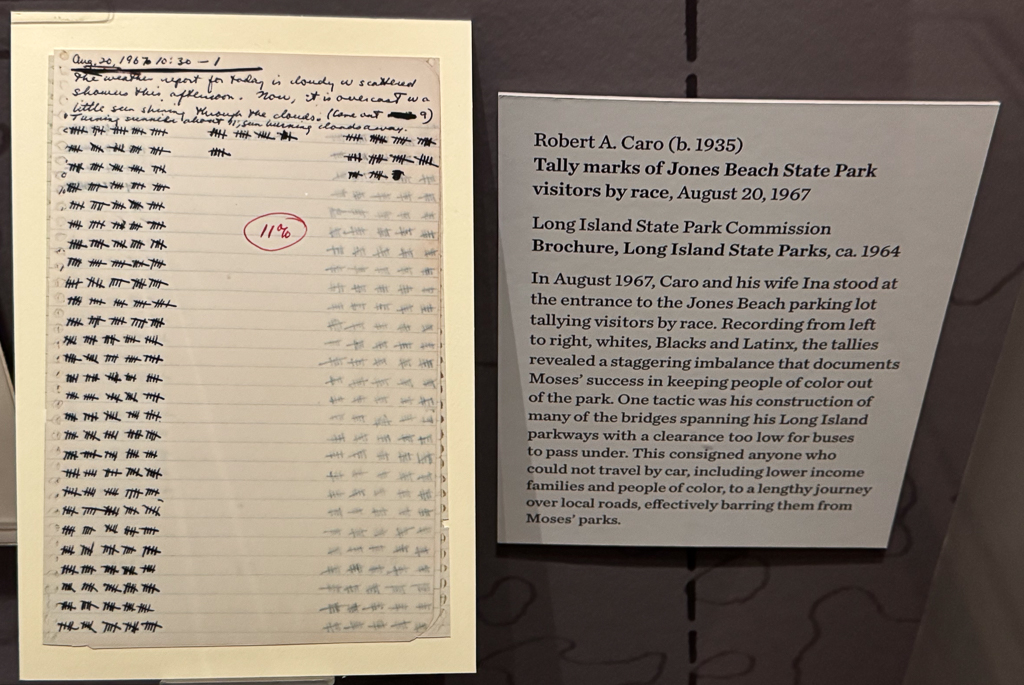 Aug. 20, 1967 10:30 – 1
The weather report for today is cloudy w scattered
showers this afternoon. Now, it is overcast w a
little sun shining through the clouds. (Came out 9)
Turning sunnier about 11, sun burning clouds away.
11%
Robert A. Caro (b. 1935)
Tally marks of Jones Beach State Park
visitors by race, August 20, 1967
Long Island State Park Commission
Brochure, Long Island State Parks, ca. 1964
In August 1967, Caro and his wife Ina stood at
the entrance to the Jones Beach parking lot
tallying visitors by race. Recording from left
to right, whites, Blacks and Latinx, the tallies
revealed a staggering imbalance that documents
Moses’ success in keeping people of color out
of the park. One tactic was his construction of
many of the bridges spanning his Long Island
parkways with a clearance too low for buses
to pass under. This consigned anyone who
could not travel by car, including lower income
families and people of color, to a lengthy journey
over local roads, effectively barring them from
Moses’ parks.